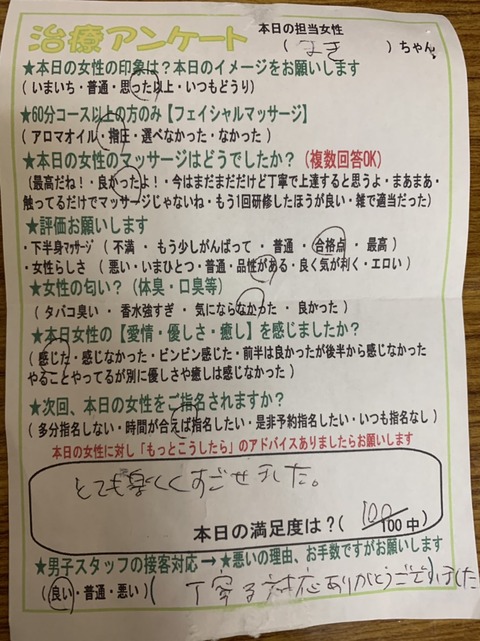 治療アンケート
本日の担当女性
( まき )ちゃん
★本日の女性の印象は？本日のイメージをお願いします
( いまいち・普通・思った以上・いつもどうり )
★60分コース以上の方のみ【フェイシャルマッサージ】
( アロマオイル・指圧・選べなかった・なかった )
★本日の女性のマッサージはどうでしたか？(複数回答OK)
(最高だね！・良かったよ！・今はまだまだだけど丁寧で上達すると思うよ・まあまあ・
触ってるだけでマッサージじゃないね・もう1回研修したほうが良い・雑で適当だった)
★評価お願いします
・下半身マッサージ ( 不満 ・ もう少しがんばって ・ 普通 ・ 合格点 ・ 最高 )
・女性らしさ ( 悪い・いまひとつ・普通・品性がある・良く気が利く・エロい )
★女性の匂い？（体臭・口臭等）
( タバコ臭い ・ 香水強すぎ ・ 気にならなかった ・ 良かった )
★本日女性の【愛情・優しさ・癒し】を感じましたか？
( 感じた・感じなかった・ビンビン感じた・前半は良かったが後半から感じなかった
やることやってるが別に優しさや癒しは感じなかった )
★次回、本日の女性をご指名されますか？
( 多分指名しない・時間が合えば指名したい・是非予約指名したい・いつも指名なし )
本日の女性に対し「もっとこうしたら」のアドバイスありましたらお願いします
とても楽しくすごせました。
本日の満足度は？( 100/100中 )
★男子スタッフの接客対応→★悪いの理由、お手数ですがお願いします
( 良い・普通・悪い ) ( 丁寧な対応ありがとうございました